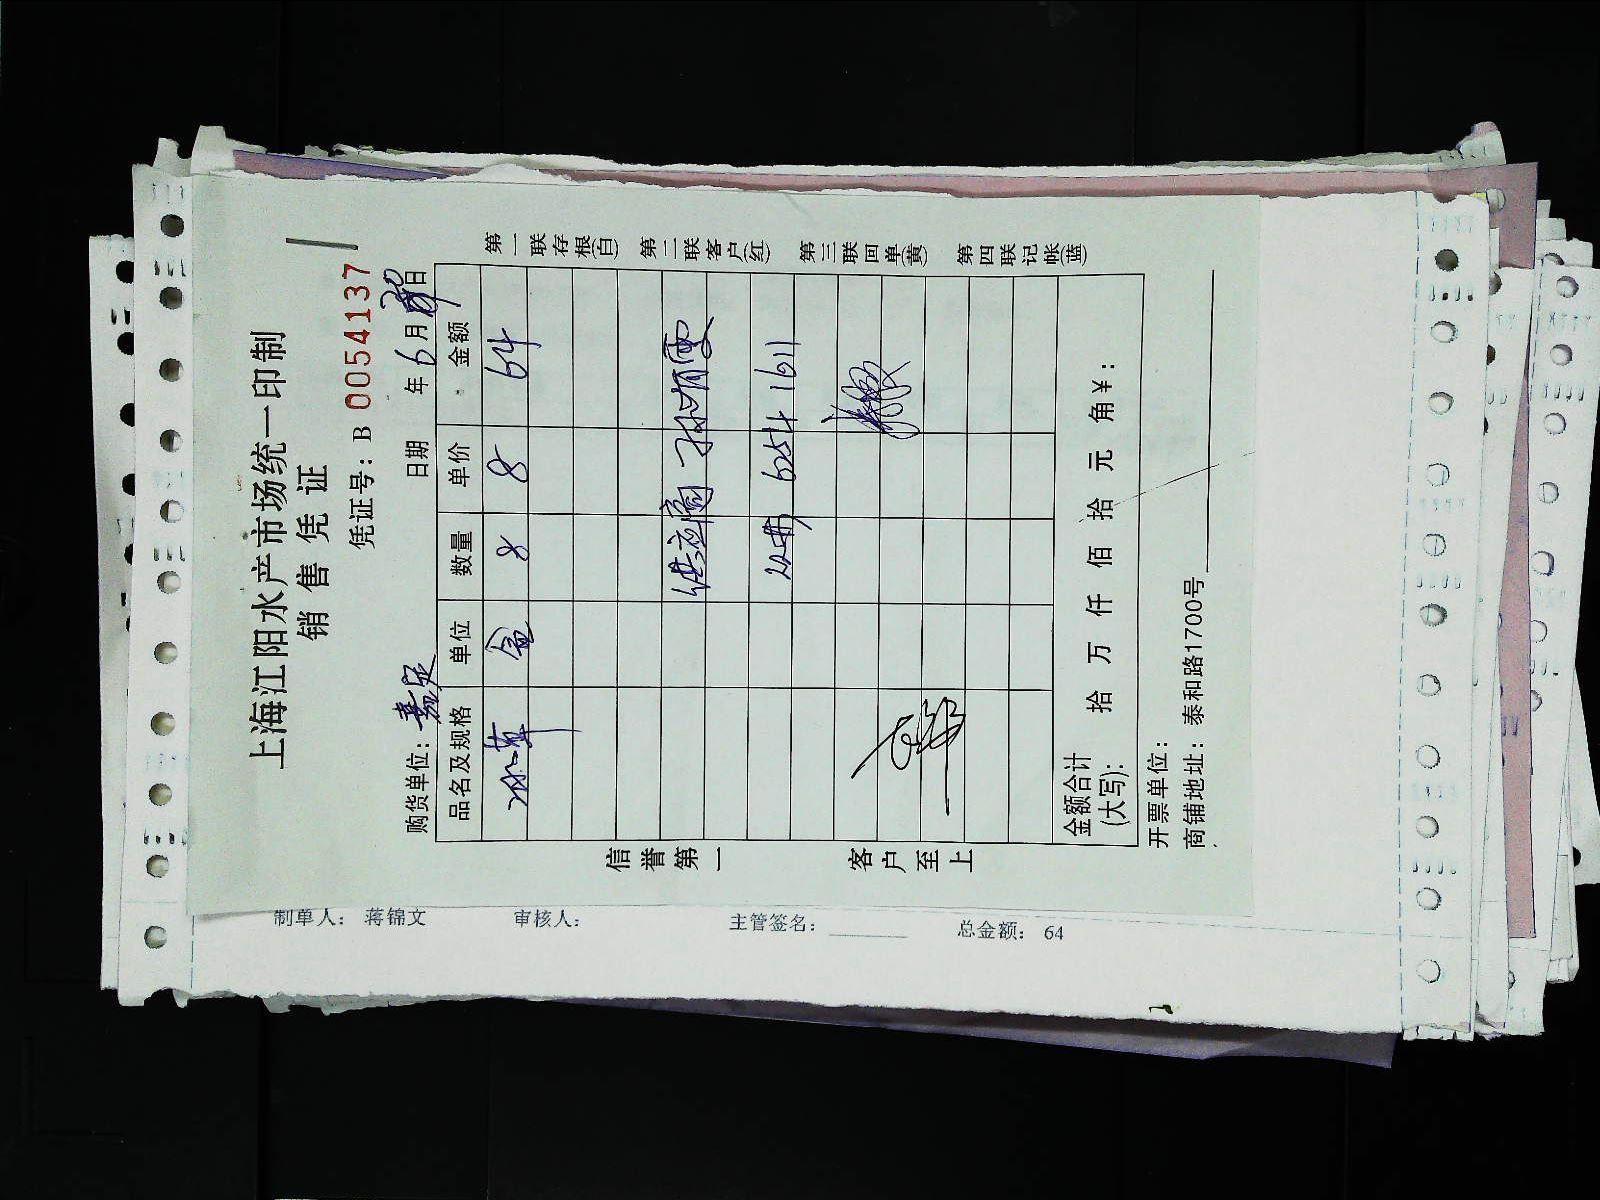 上海江阳水产市场统一印制
销售凭证
凭证号: B 0054137
购货单位: 嘉定 日期 年 6 月 20 日
品名及规格 单位 数量 单价 金额
盒 8 8 64
供应商
6254 1611
信誉第一 客户至上
第一联存根(白) 第二联客户(红) 第三联回单(黄) 第四联记帐(蓝)
金额合计(大写): 拾 万 仟 佰 拾 元 角 ¥:
开票单位:
商铺地址: 泰和路1700号
制单人: 蒋锦文 审核人: 主管签名: 总金额: 64